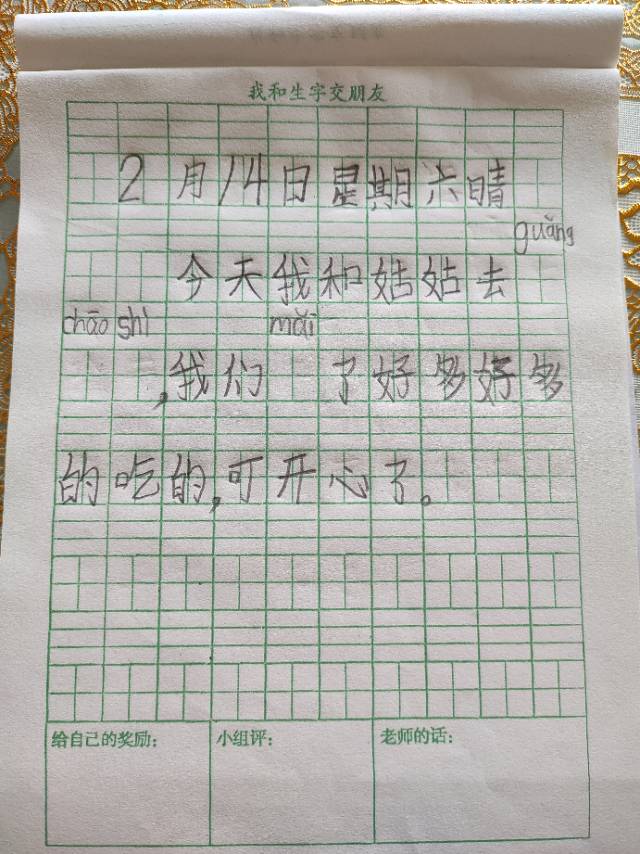 我和生字交朋友
2月14日星期六晴
guǎng
今天我和姑姑去
chāo shì mǎi
,我们 了好多好多
的吃的,可开心了。
给自己的奖励:
小组评:
老师的话: